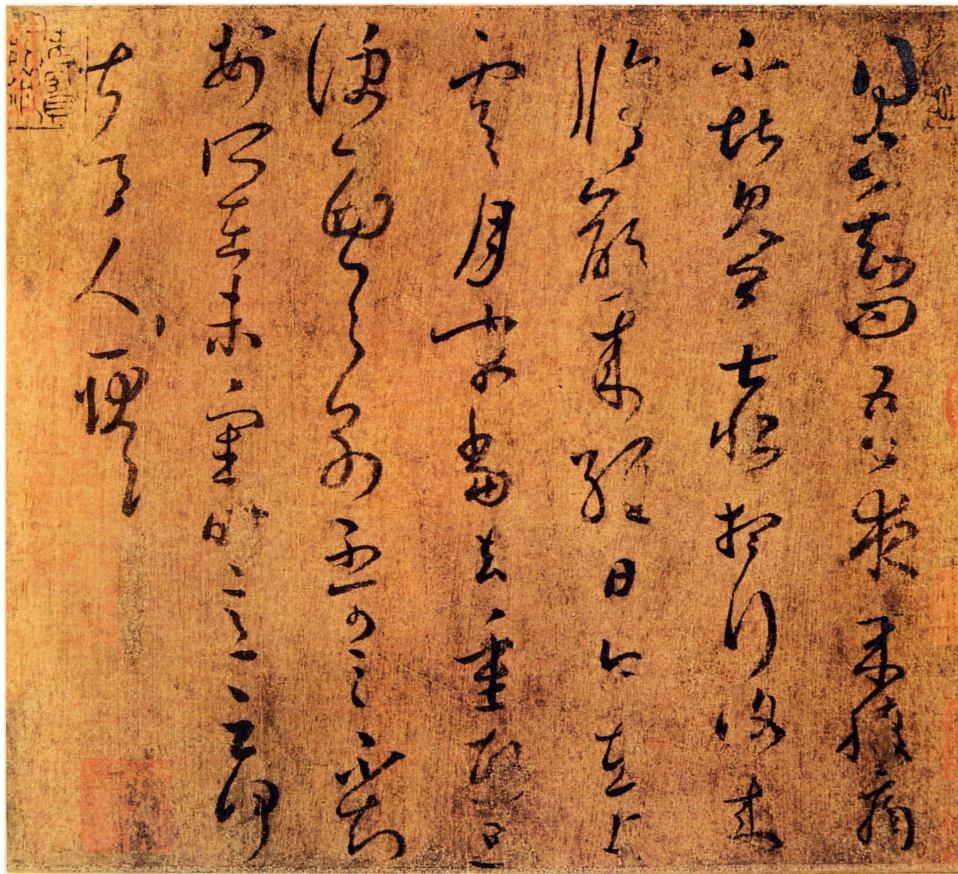 得書知問吾夜來腹痛
不堪見卿甚恨想行復來
脩齡來經日今在上
虞月末當去重熙旦
便西與別不可言不知
安所在未審時意云何
甚令人耿耿